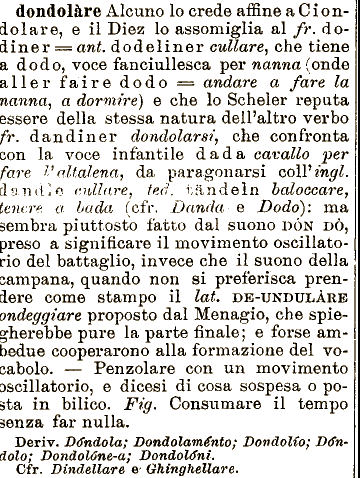 dondolàre Alcuno lo crede affine a Cion-
dolare, e il Diez lo assomiglia al fr. do-
diner = ant. dodeliner cullare, che tiene
a dodo, voce fanciullesca per nanna (onde
aller faire dodo = andare a fare la
nanna, a dormire) e che lo Scheler reputa
essere della stessa natura dell'altro verbo
fr. dandiner dondolarsi, che confronta
con la voce infantile dada cavallo per
fare l'altalena, da paragonarsi coll'ingl.
dandle cullare, ted. tändeln baloccare,
tenere a bada (cfr. Danda e Dodo): ma
sembra piuttosto fatto dal suono DÓN DÒ,
preso a significare il movimento oscillato-
rio del battaglio, invece che il suono della
campana, quando non si preferisca pren-
dere come stampo il lat. DE-UNDULÀRE
ondeggiare proposto dal Menagio, che spie-
gherebbe pure la parte finale; e forse am-
bedue cooperarono alla formazione del vo-
cabolo. — Penzolare con un movimento
oscillatorio, e dicesi di cosa sospesa o po-
sta in bilico. Fig. Consumare il tempo
senza far nulla.
Deriv. Dóndola; Dondolaménto; Dondolío; Dón-
dolo; Dondolóne-a; Dondolóni.
Cfr. Dindellare e Ghinghellare.